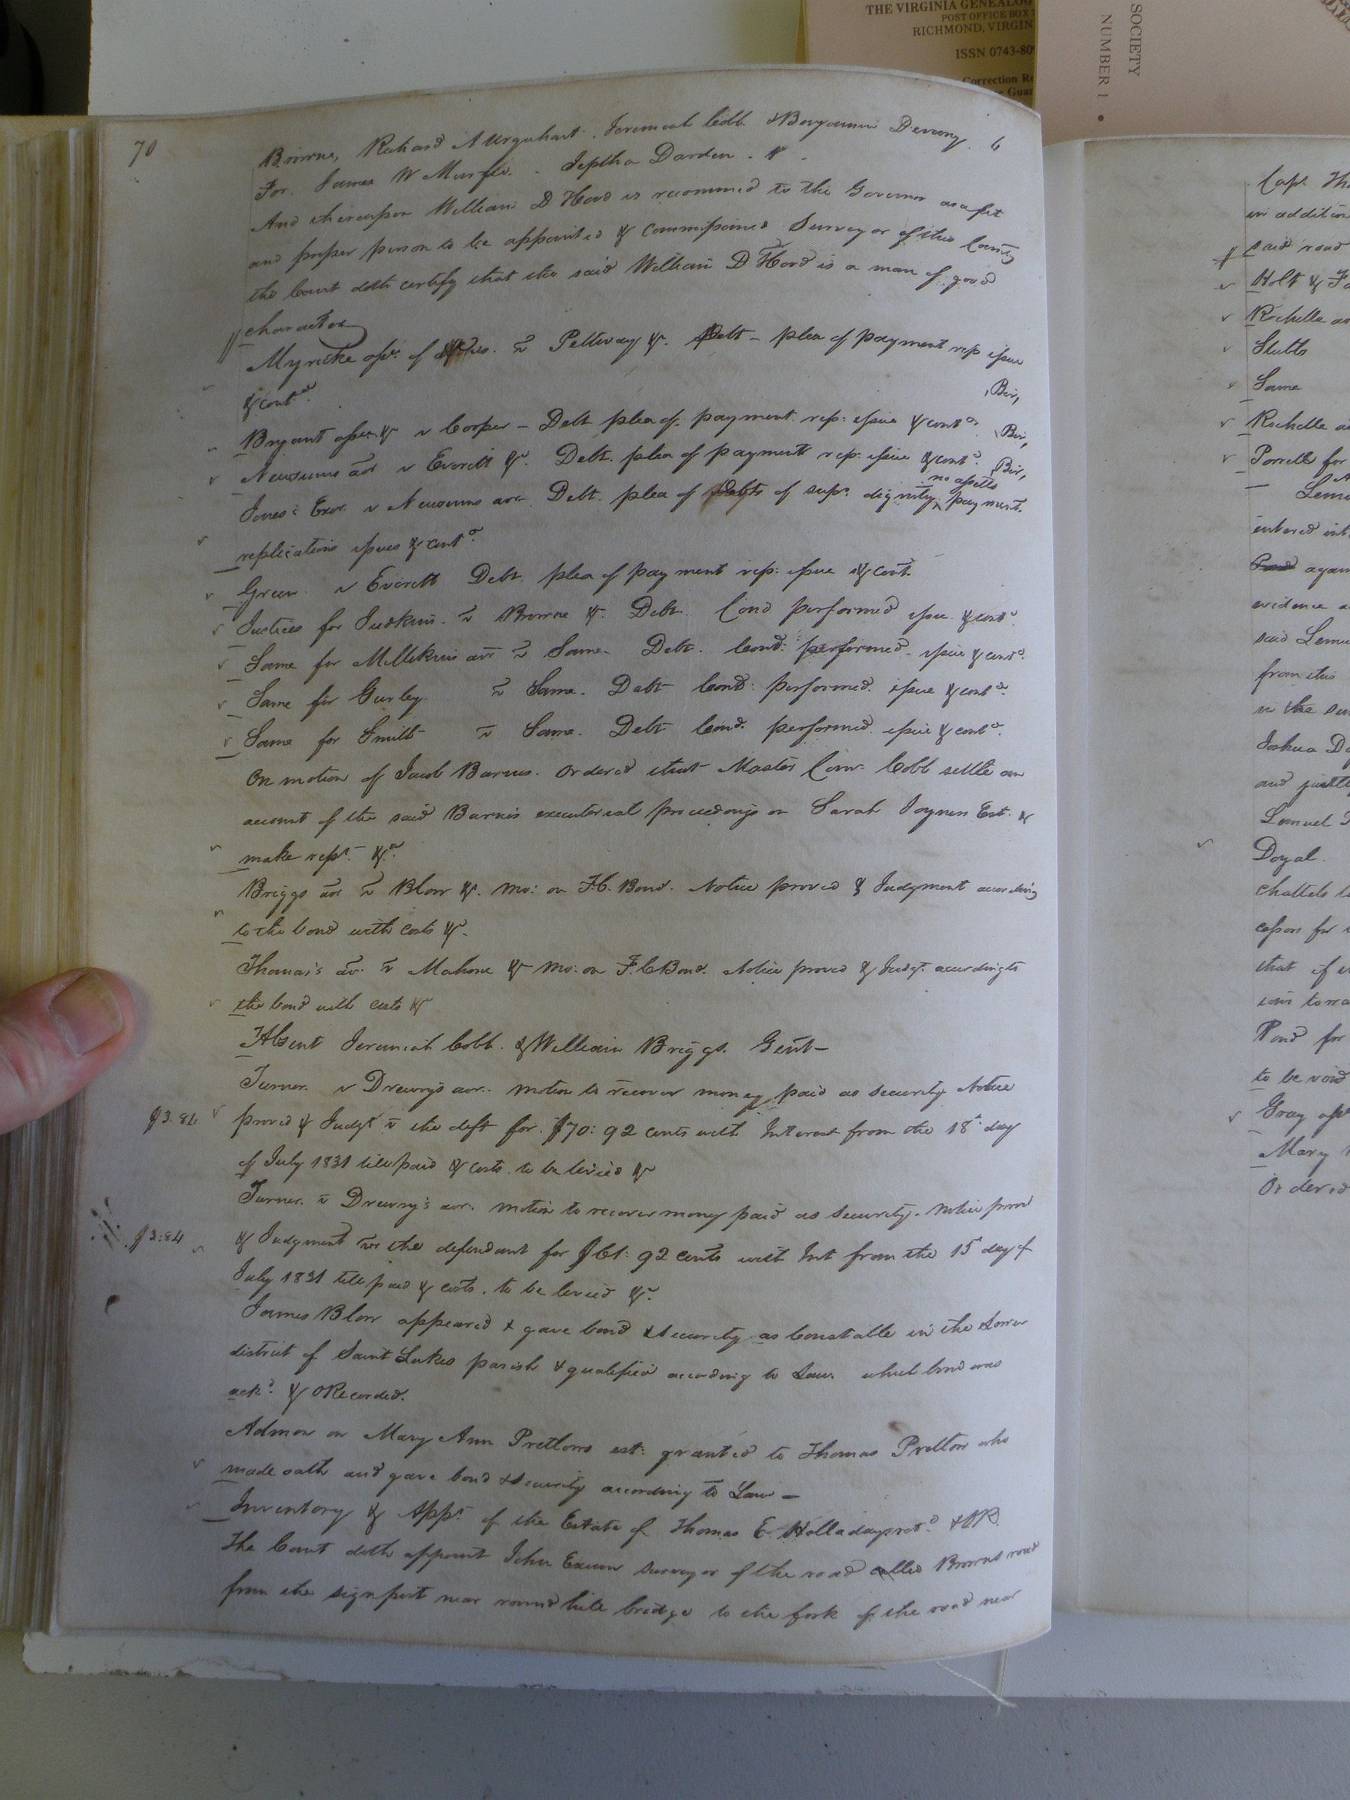 THE VIRGINIA GENEALOG
POST OFFICE BOX
RICHMOND, VIRGIN
ISSN 0743-809
Correction Re
Guar
SOCIETY
NUMBER 1
70
Browne, Richard A Urquhart. Jeremiah Cobb & Benjamin Devany. 6
For. James W Murfee. Jeptha Darden. 1.
And thereupon William D Hood is recommd to the Governor as a fit
and proper person to be appointed & commissioned Surveyor of this County
the Court doth certify that the said William D Hood is a man of good
character
Myricke assee. of vs Pettway &c. Debt - plea of payment rep issue
& contd.
Bir,
Bryant assee &c v Cooper - Debt plea of payment rep: issue & contd.
Bir,
Newsums adr v Everitt &c. Debt. plea of payment rep: issue & contd.
Bir,
Jones's Exor. v Newsums adr Debt. plea of debts of supr. dignity, no assetts payment.
replications issues & contd.
Green v Everitt Debt. plea of payment rep: issue & cont.
Justices for Judkins. vs Browne &c. Debt. Cond performed issue & contd.
Same for Millikins adr vs Same. Debt. Cond: performed. issue & contd.
Same for Gurley vs Same. Debt Cond: performed. issue & contd.
Same for Smith vs Same. Debt Cond. performed. issue & contd.
On motion of Jacob Barnes. Ordered that Master Com. Cobb settle an
account of the said Barnes executorial proceedings on Sarah Joyners Est. &
make rept. &c.
Briggs adr vs Blow &c. mo: on F.C. Bond. Notice proved & Judgment according
to the bond with costs &c.
Thomas's adr. vs Mahone &c mo: on F.C Bond. Notice proved & Judgt. according to
the bond with costs &c
Absent Jeremiah Cobb. & William Briggs. Gent -
Turner. v Drewry's adr. motion to recover money paid as security Notice
$3.84 proved & Judgt vs the deft for. $70: 92 cents with Interest from the 18th day
of July 1831 till paid & costs. to be levied &c
Turner. vs Drewry's adr. motion to recover money paid as security. notice proved
$3:84 & Judgment vs the defendant for $61: 92 cents with Int from the 15th day of
July 1831 till paid & costs. to be levied &c.
James Blow appeared & gave bond & security as Constable in the Lower
district of Saint Lukes parish & qualified according to Law. which bond was
ackd. & ORecorded.
Admon on Mary Ann Pretlows est: granted to Thomas Pretlow who
made oath and gave bond & security according to Law -
Inventory & Appt. of the Estate of Thomas E Holladay retd. & OR.
The Court doth appoint John Exum surveyor of the road called Browns road
from the signpost near round hill bridge to the fork of the road near
Capt. Tho
in addition
said road
Holt & Fa
Rochelle as
Stubbs
Same
Rochelle a
Porrell for
Lemu
entered int
again
evidence a
said Lemu
from this
in the su
Joshua Do
and justly
Lemuel
Doyal.
chattels
for
that if
Pond for
to be void
Gray asse
Mary
Ordered